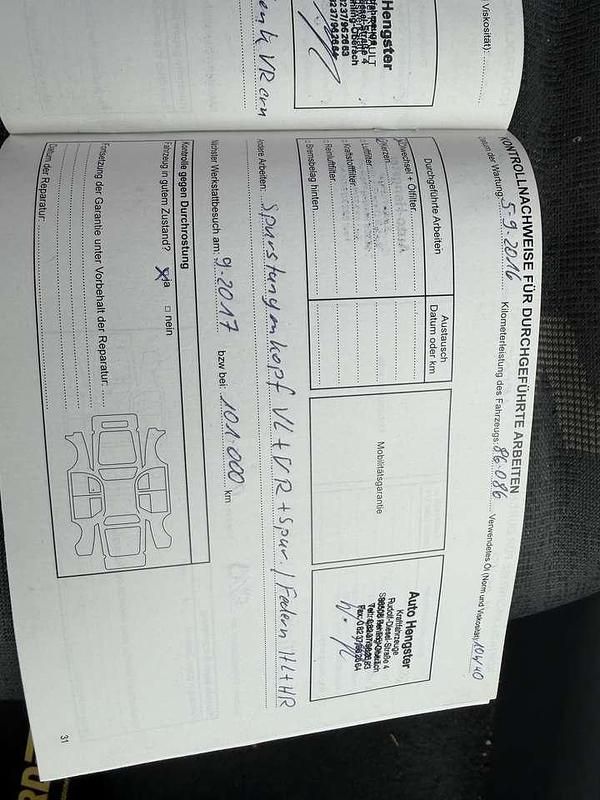 Viskosität):
Hengster
ienk VR ern
KONTROLLNACHWEISE FÜR DURCHGEFÜHRTE ARBEITEN
Datum der Wartung: 5.9.2016 Kilometerleistung des Fahrzeugs: 86.086 Verwendetes Öl (Norm und Viskosität): 10W40
Durchgeführte Arbeiten
Austausch
Datum oder km
Ölwechsel + Ölfilter
Kerzen
Luftfilter
Kraftstofffilter
Reinluftfilter
Bremsbelag hinten
Mobilitätsgarantie
Auto Hengster
Kraftfahrzeuge
Rudolf-Diesel-Straße 4
Andere Arbeiten: Spurstangenkopf VL+VR + Spur. / Federn HL+HR
Nächster Werkstattbesuch am: 9.2017 bzw bei: 101.000 km
Kontrolle gegen Durchrostung
Fahrzeug in gutem Zustand? ja nein
Fortsetzung der Garantie unter Vorbehalt der Reparatur:
Datum der Reparatur:
31